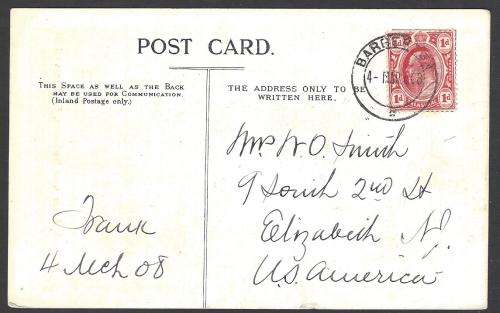 POST CARD.
THIS SPACE AS WELL AS THE BACK
MAY BE USED FOR COMMUNICATION.
(Inland Postage only.)
THE ADDRESS ONLY TO BE
WRITTEN HERE.
1d 1d
Mr W. O. Smith
9 South 2nd St
Elizabeth N.J.
U.S. America
Frank
4 Mch 08